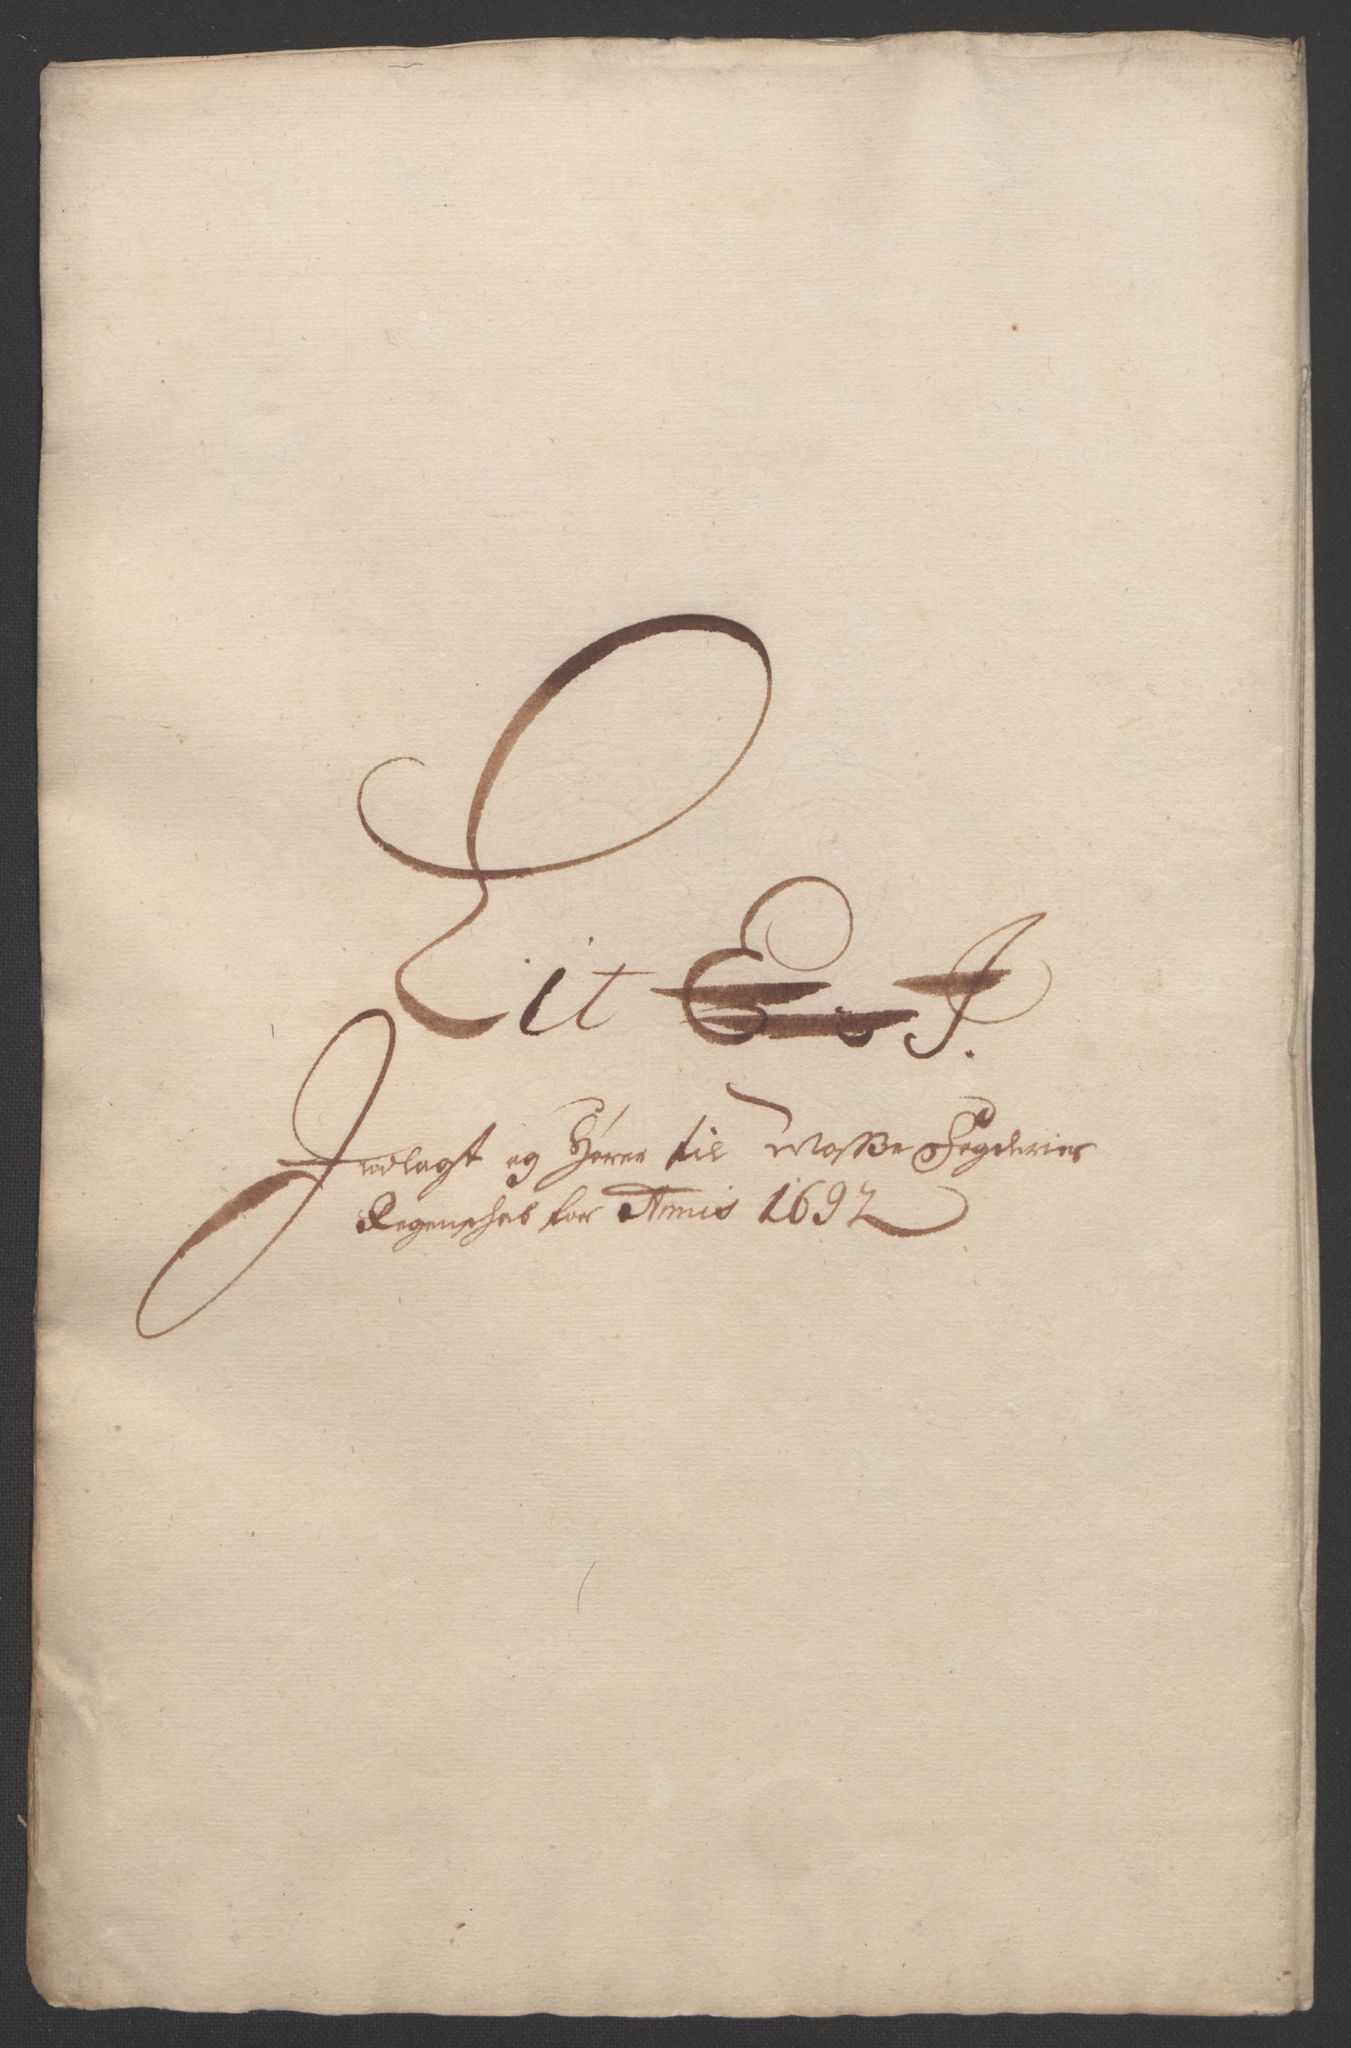 Lit E et J.
Indlagt og Hører til Mosse Fogderies
Regenschab for Annis 1692